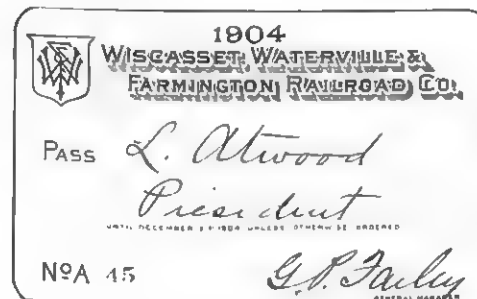 1904
WISCASSET, WATERVILLE &
FARMINGTON RAILROAD CO.
PASS L. Atwood
President
UNTIL DECEMBER 31 1904 UNLESS OTHERWISE ORDERED
NºA 45 G.P. Farley
GENERAL MANAGER